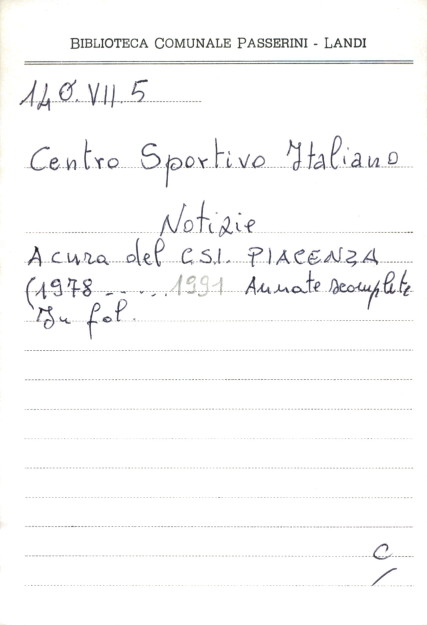 BIBLIOTECA COMUNALE PASSERINI - LANDI
140.VII.5
Centro Sportivo Italiano
Notizie
A cura del C.S.I. PIACENZA
(1978 ..... 1991 Annate scomplete
In fol.
C